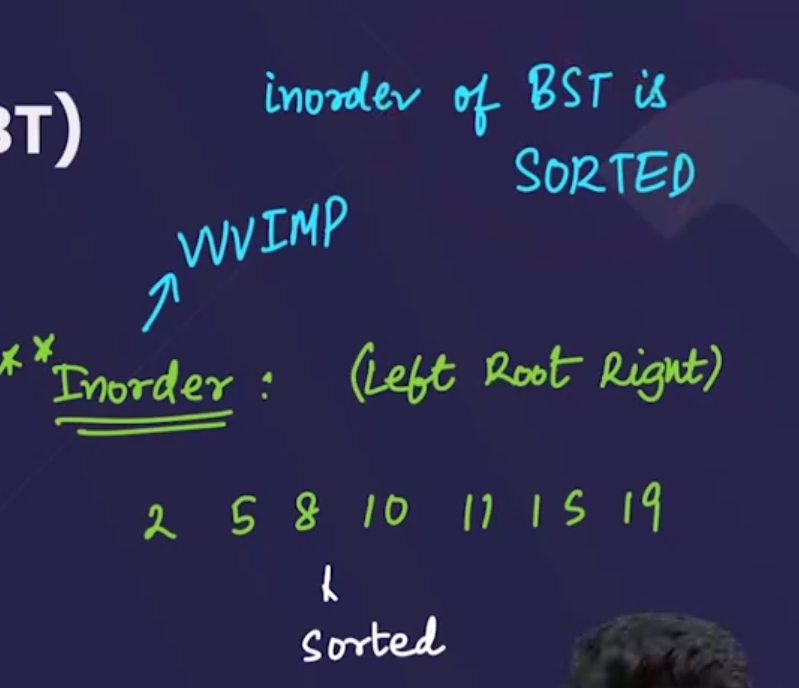 inorder of BST is
BT)
SORTED
VVVIMP
**Inorder : (Left Root Right)
2 5 8 10 11 15 19
sorted